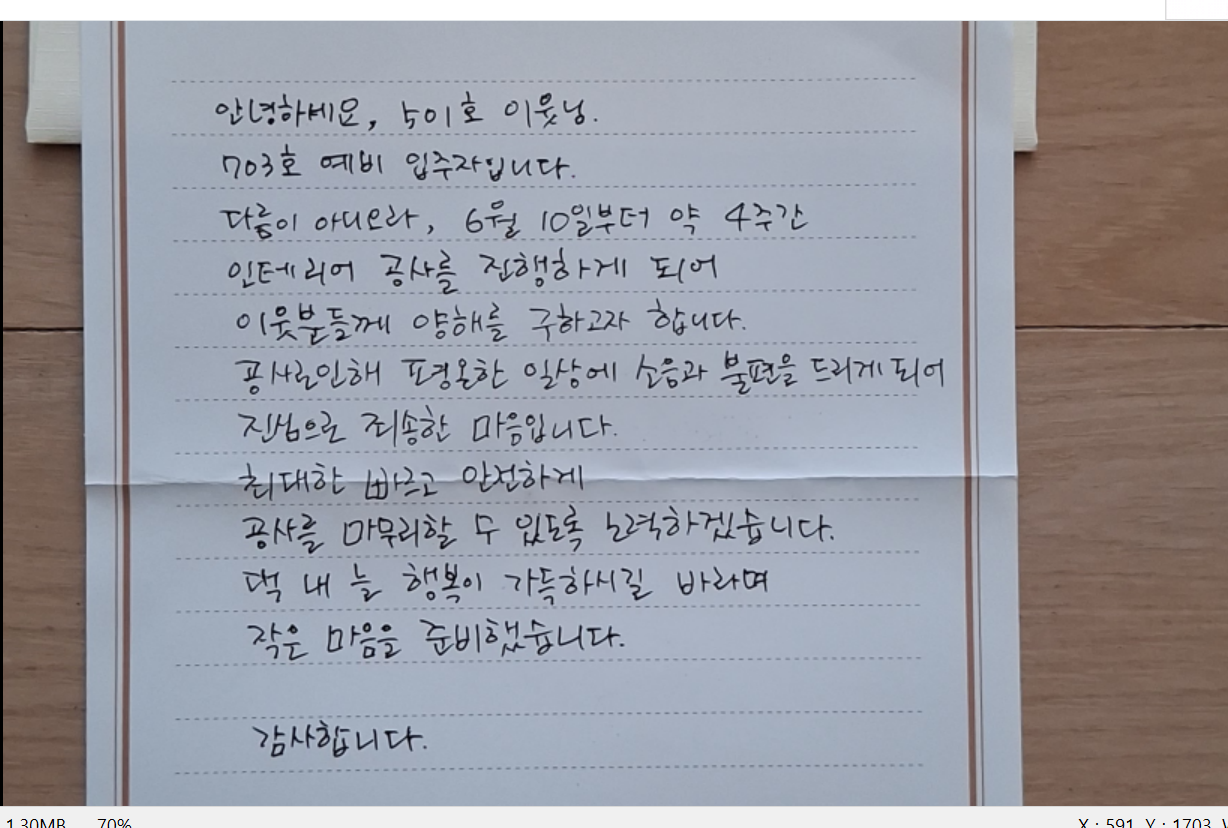 안녕하세요, 501호 이웃님.
703호 예비 입주자입니다.
다름이 아니오라, 6월 10일부터 약 4주간
인테리어 공사를 진행하게 되어
이웃분들께 양해를 구하고자 합니다.
공사로인해 평온한 일상에 소음과 불편을 드리게 되어
진심으로 죄송한 마음입니다.
최대한 빠르고 안전하게
공사를 마무리할 수 있도록 노력하겠습니다.
댁 내 늘 행복이 가득하시길 바라며
작은 마음을 준비했습니다.
감사합니다.
1.30MB 70% X : 591, Y : 1703,